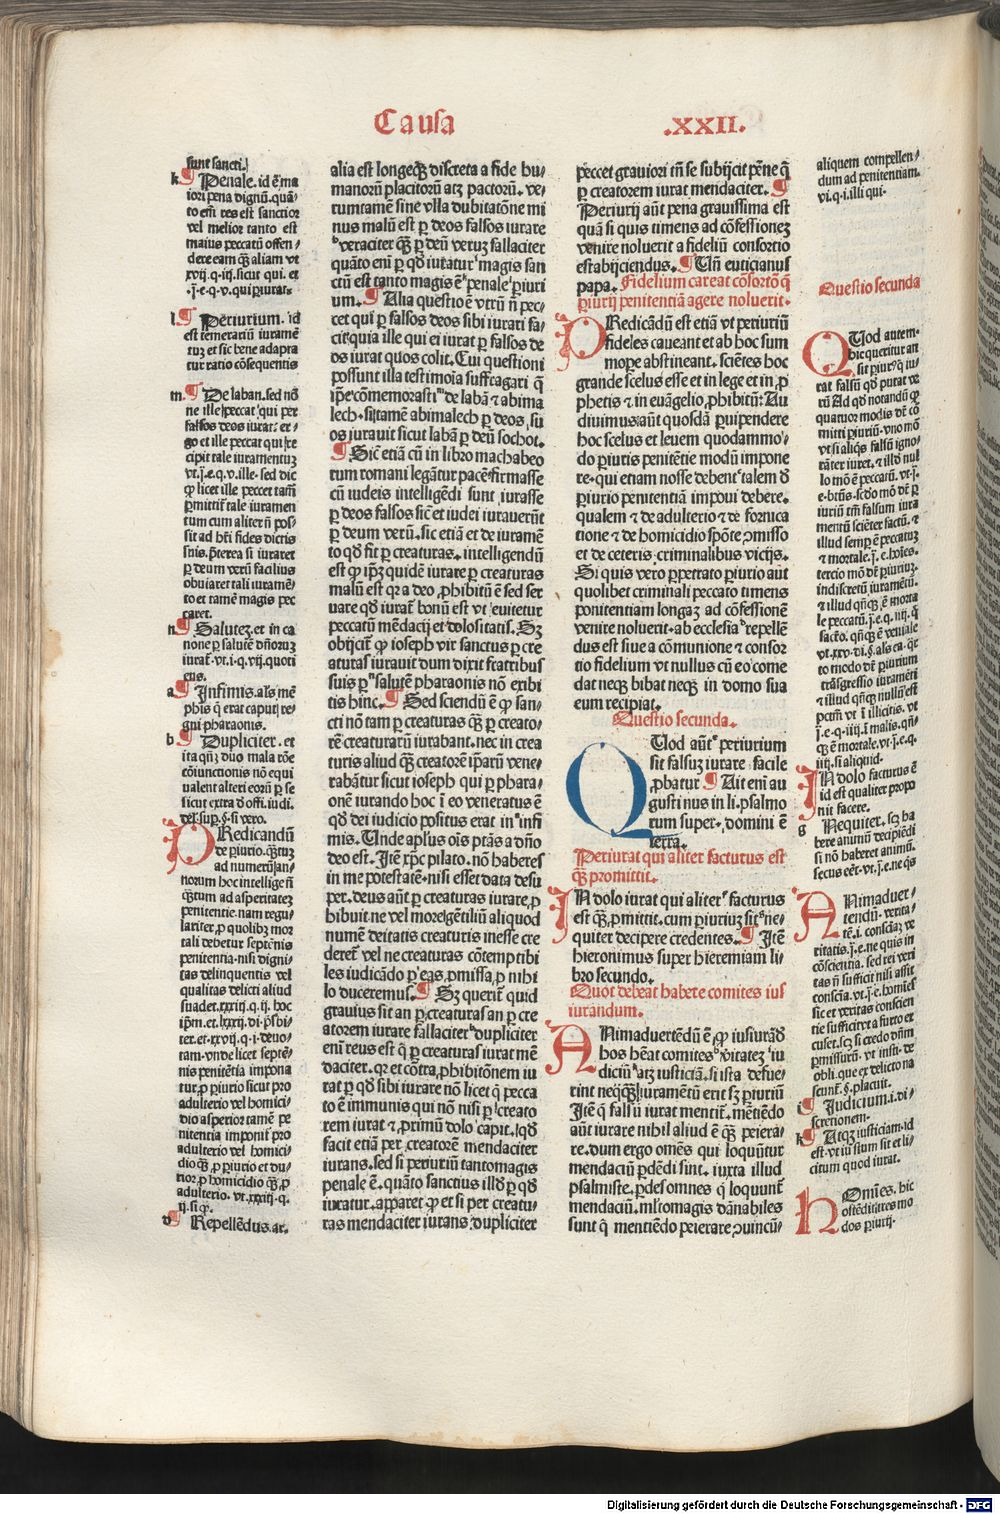 Causa
.XXII.
sunt sancti.
k ¶ Penale. id ē ma
iori pena dignū. quā⸗
to em̄ res est sanctior
vel melior tanto est
maius peccatū offen⸗
dere eam q̄ʒ aliam vt
xvij. q. iij. sicut qui. et
.j. e. q. v. qui piurat.
l ¶ Periurium. id
est temerariū iuramē
tuʒ et sic bene adapta
tur ratio cōsequentis
m. ¶ De laban. sed nō
ne ille peccat qui per
falsos deos iurat: er⸗
go et ille peccat qui re
cipit tale iuramentuʒ
vt. j. e. q. v. ille. sed dic
ꝙ licet ille peccet tam̄
ꝑmittit̄ tale iuramen
tum cum aliter n̄ pos⸗
sit ad hr̄i fides dictis
suis. p̄terea si iuraret
ꝑ deum verū facilius
obuiaret tali iuramē⸗
to et tamē magis pec
caret.
n. ¶ Salutez. et in ca
none ꝑ salutē dn̄oruʒ
iurat̄. vt. i. q. vij. quoti
ens.
a ¶ Infimis. als mē
phis q̄ erat caput re⸗
gni pharaonis.
b ¶ Dupliciter. et
ita qn̄ʒ duo mala rōe
cōiunctionis nō equi
ualent alteri eorū ꝑ se
sicut extra d̄ offi. iu. di.
del. sup. §. si vero.
PRedicandū
de ꝑiurio. q̄stuʒ
ad numerū an⸗
norum hoc intellige n̄
q̄ʒtum ad asperitatez
penitentie. nam regu⸗
lariter. ꝓ quolibʒ mor
tali debetur septēnis
penitentia. nisi digni⸗
tas delinquentis vel
qualitas delicti aliud
suadet. xxxiij. q. ij. hoc
ipm̄. et. lxxxij. di. p̄sbi⸗
ter. et. xxvij. q. i. deuo⸗
tam. vnde licet septē⸗
nis penitētia impona
tur. ꝓ ꝑiurio sicut pro
adulterio vel homici⸗
dio asperior tamē pe
nitentia imponit̄ pro
adulterio vel homici⸗
dio q̄ʒ. ꝓ ꝑiurio et du⸗
rior. ꝓ homicidio q̄ʒ. ꝓ
adulterio. vt. xxxiij. q.
ij. si qͥ.
o ¶ Repellēdus. ar.
alia est longe q̄ʒ discreta a fide hu⸗
manorū placitorū atʒ pactorū. ve⸗
rumtamē sine vlla dubitatōne mi
nus malū est ꝑ deos falsos iurare
veraciter q̄ʒ ꝑ deū veruʒ fallaciter
quāto eni ꝑ qd̄ iuratur magis san
ctū est tanto magis ē penale ꝑiuri
um. ¶ Alia questio ē vtrū n̄ pec⸗
cet qui ꝑ falsos deos sibi iurari fa⸗
cit: quia ille qui ei iurat ꝑ falsos de
os iurat quos colit. Cui questioni
possunt illa testimoīa suffragari q̄
ipe cōmemorasti de labā ⁊ abima
lech. si tamē abimalech ꝑ deos su
os iurauit sicut labā ꝑ deū sochot.
¶ Sic etiā cū in libro machabeo
rum romani legātur pacē firmasse
cū iudeis intelligēdi sunt iurasse
ꝑ deos falsos sic et iudei iurauerūt
ꝑ deum verū. sic etiā et de iuramē
to qd̄ fit ꝑ creaturas. intelligendū
est ꝙ ip̄ʒ quidē iurare ꝑ creaturas
malū est qr a deo ꝓhibitū ē sed ser
uare qd̄ iurat̄ bonū est vt euitetur
peccatū mēdacij et dolositatis. Sʒ
obijcit̄ ꝙ ioseph vir sanctus ꝑ cre
aturas iurauit dum dixit fratribus
suis ꝑ salutē pharaonis nō exibi
tis hinc. ¶ Sed sciendū ē ꝙ san⸗
cti nō tam ꝑ creaturas q̄ʒ ꝑ creato⸗
rē creaturarū iurabant. nec in crea
turis aliud q̄ʒ creatorē ip̄arū vene⸗
rabātur sicut ioseph qui ꝑ phara⸗
onē iurando hoc ī eo veneratus ē
qd̄ dei iudicio positus erat in infi
mis. Unde apl̄us oīs ptās a dn̄o
deo est. Itē xp̄c pilato. nō haberes
in me potestatē. nisi esset data desu
per. deus aūt ꝑ creaturas iurare. ꝓ
hibuit. ne vel more gētiliū aliquod
numē deitatis creaturis inesse cre
deret̄ vel ne creaturas cōtemptibi
les iudicādo ꝑ eas. ꝓmissa. ꝓ nihi
lo duceremus. ¶ Sʒ querit̄ quid
grauius sit an ꝑ creaturas an ꝑ cre
atorem iurare fallaciter dupliciter
eni reus est q̄ ꝑ creaturas iurat mē
daciter. qr et cōtra. ꝓhibitōnem iu
rat ꝑ qd̄ sibi iurare nō licet q̄ pecca
to ē immunis qui nō nisi ꝑ creato
rem iurat ⁊ primū dolo capit. qd̄
facit etiā per creatorē mendaciter
iurans. sed si periuriū tantomagis
penale ē. quāto sanctius illd̄ ꝑ qd̄
iuratur. apparet ꝙ et si per creatu⸗
ras mendaciter iurans dupliciter
peccet grauiori tn̄ se subijcit pēne q̄
ꝑ creatorem iurat mendaciter. ¶
Periurij aūt pena grauissima est
quā si quis timens ad cōfessionez
venire noluerit a fideliū consortio
est abijciendus. ¶ Un̄ euticianus
papa. Fidelium careat cōsortō q̄
ꝑiurij penitentiā agere noluerit.
PRedicādū est etiā vt periuriū
fideles caueant et ab hoc sum
mope abstineant. sciētes hoc
grande scelus esse et in lege et in ꝓ
phetis ⁊ in euāgelio ꝓhibitū: Au
diuimus aūt quosdā ꝑuipendere
hoc scelus et leuem quodammo⸗
do ꝑiuris penitētie modū impone
re. qui etiam nosse debent talem d̄
ꝑiurio penitentiā impoui debere.
qualem ⁊ de adulterio ⁊ de fornica
tione ⁊ de homicidio spōte ꝯmisso
et de ceteris criminalibus vicijs.
Si quis vero ꝑpetrato ꝑiurio aut
quolibet criminali peccato timens
ponitentiam longaʒ ad cōfessionē
venire noluerit. ab ecclesia repellē
dus est siue a cōmunione ⁊ consor
tio fidelium vt nullus cū eo come
dat neqʒ bibat neqʒ in domo sua
eum recipiat.
Questio secunda.
QUod aūt periurium
sit falsuʒ iurare facile
ꝓbatur ¶ Ait eni au
gustinus in li. psalmo
rum super. domini ē
terra.
Periurat qui aliter facturus est
q̄ʒ promittit.
IN dolo iurat qui aliter facturus
est q̄ʒ. ꝓmittit. cum ꝑiuriuʒ sit ne⸗
quiter decipere credentes. ¶ Itē
hieronimus super hieremiam li⸗
bro secundo.
Quot debeat habere comites ius
iurandum.
ANimaduertēdū ē ꝙ iusiurād̄
hos hēat comites vitatez iu
diciū atʒ iusticiā. si ista defue⸗
rint neqq̄ʒ iuramētū erit sʒ ꝑiuriū
Itē q̄ falsū iurat mentit̄. mētiēdo
aūt iurare nihil aliud ē q̄ʒ peiera⸗
re. dum ergo omēs qui loquūtur
mendaciū ꝑdēdi sint. iuxta illud
psalmiste. ꝑdes omnes q̄ loquunt̄
mendaciū. ml̄tomagis dānabiles
sunt q̄ mentiēdo peierare ꝯuincū⸗
aliquem compellen⸗
dum ad penitentiam.
vi. q. i. illi qui.
Questio secunda
QUod autem.
hic queritur an
sit ꝑiurꝰ q̄ iu⸗
rat falsū qd̄ putat ve
rū Ad qd̄ notandū qͥ
quatuor modis dr̄ cō
mitti ꝑiuriū. vno mō
vt si aliqs falsū igno⸗
rāter iuret. ⁊ illd̄ nul
lo mō ē peccatū. vt. j.
e. btn̄s. scd̄o mō dr̄ ꝑ
iuriū tm̄ falsum iura
mentū sciēter factū. ⁊
illud semꝑ ē peccatuʒ
⁊ mortale. j. e. hoīes.
tercio mō dr̄ ꝑiuriuʒ.
indiscretū iuramētū.
⁊ illud qn̄qʒ ē morta
le peccatū. j. e. q. iiij. q̄
sacro. qn̄qʒ ē veniale
vt. xxv. di. §. als ea. q̄r
to modo dr̄ ꝑiurium
trāsgressio iuramēti
⁊ illud qn̄qʒ nullū est
pctm̄ vt ī illicitis. vt
.j. e. q. iiij. ī malis. qn̄
qʒ ē mortale. vt. j. e. q.
iiij. si aliquid.
IN dolo facturus ē
id est qualiter propo
nit facere.
g Nequiter. sʒ ha
bere animū decipiēdi
si nō haberet animū.
secus eēt. vt. j. e. ne qͥs
ANimaduer⸗
tendū. verita⸗
tē. i. consciaʒ ve
ritatis. j. e. ne quis in
cōscientia. sed rei veri
tas n̄ sufficit nisi assit
conscīa. vt. j. e. homīes
sic et veritas conscien
tie sufficit vt a furto et
cuset. sʒ si credo dn̄m
ꝑmissurū. vt insti. de
obli. que ex delicto na
scunt̄. §. placuit.
i ¶ Judicium. i. di⸗
scretionem.
k ¶ Atqʒ iusticiam. id
est. vt iustum sit et li⸗
citum quod iurat.
HOmīes. hic
ostēdit̄ tres mo
dos ꝑiurij.
Digitalisierung gefördert durch die Deutsche Forschungsgemeinschaft - DFG